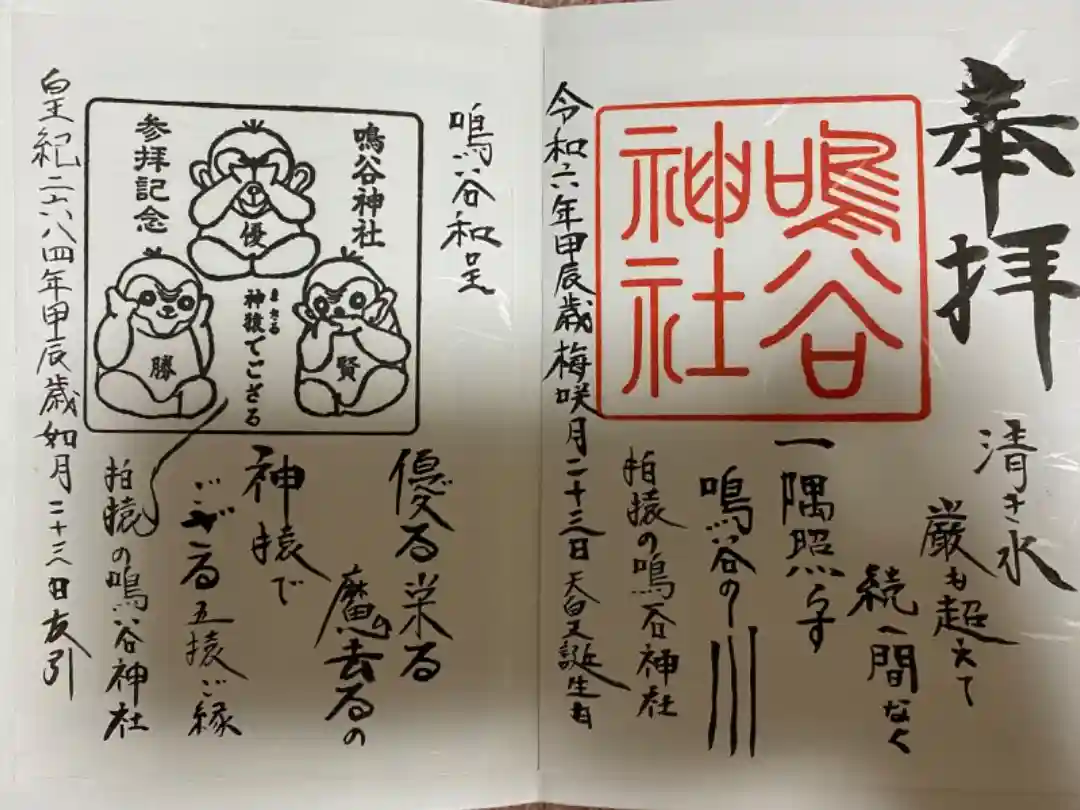 奉拝
清き水
厳も超えて
続く間なく
一隅照らす
鳴谷の川
鳴谷
神社
拍猿の鳴谷神社
令和六年甲辰歳梅咲月二十三日天皇誕生日
鳴谷和呈
鳴谷神社
参拝記念
優
勝
賢
まさる
神猿でござる
優る栄る
魔去るの
神猿で
ござる五猿ご縁
拍猿の鳴谷神社
皇紀二六八四年甲辰歳如月二十三日友引